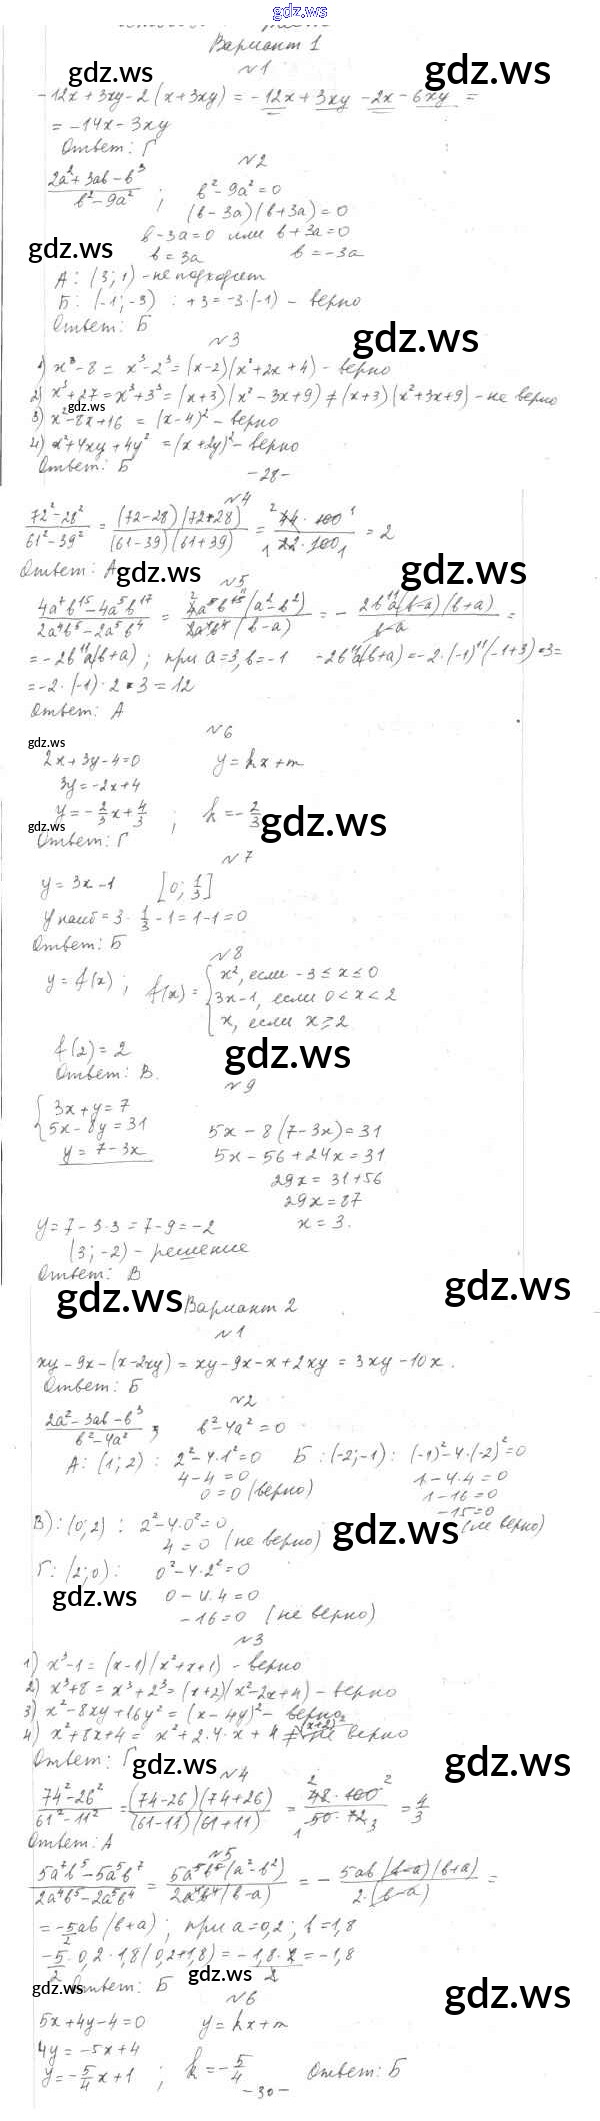 gdz.ws
Вариант 1
gdz.ws gdz.ws
№1
-12x + 3xy - 2(x + 3xy) = -12x + 3xy - 2x - 6xy =
= -14x - 3xy
Ответ: Г
№2
(2a² + 3ab - b³)/(b² - 9a²) ; b² - 9a² = 0
(b - 3a)(b + 3a) = 0
b - 3a = 0 или b + 3a = 0
gdz.ws b = 3a b = -3a
А: (3; 1) - не подходит
Б: (-1; -3) : +3 = -3·(-1) - верно
Ответ: Б
№3 gdz.ws
1) x³ - 8 = x³ - 2³ = (x-2)(x² + 2x + 4) - верно
2) x³ + 27 = x³ + 3³ = (x+3)(x² - 3x + 9) ≠ (x+3)(x² + 3x + 9) - не верно
gdz.ws
3) x² - 8x + 16 = (x-4)² - верно
4) x² + 4xy + 4y² = (x+2y)² - верно
Ответ: Б
-28-
№4
(72² - 28²)/(61² - 39²) = (72-28)(72+28)/(61-39)(61+39) = 44·100/22·100 = 2
Ответ: А gdz.ws gdz.ws
№5
(4a⁷b¹⁵ - 4a⁵b¹⁷)/(2a⁴b⁵ - 2a⁵b⁴) = 4a⁵b¹⁵(a² - b²)/2a⁴b⁴(b-a) = - 2b¹¹a(b-a)(b+a)/(b-a) =
= -2b¹¹a(b+a) ; при a=3, b=-1 -2b¹¹a(b+a) = -2·(-1)¹¹(-1+3)·3 =
= -2·(-1)·2·3 = 12
Ответ: А
№6
gdz.ws
2x + 3y - 4 = 0 y = kx + m
3y = -2x + 4
y = -2/3 x + 4/3 ; k = -2/3 gdz.ws
gdz.ws
Ответ: Г
№7
y = 3x - 1 [0; 1/3]
y наиб = 3·1/3 - 1 = 1 - 1 = 0
Ответ: Б
№8
y = f(x) ; f(x) = { x², если -3 ≤ x ≤ 0
3x - 1, если 0 < x < 2
x, если x ≥ 2
f(2) = 2 gdz.ws
Ответ: В.
№9
{ 3x + y = 7
5x - 8y = 31 5x - 8(7 - 3x) = 31
y = 7 - 3x 5x - 56 + 24x = 31
29x = 31 + 56
29x = 87
y = 7 - 3·3 = 7 - 9 = -2 x = 3.
(3; -2) - решение
Ответ: В
gdz.ws gdz.ws
Вариант 2
№1
xy - 9x - (x - 2xy) = xy - 9x - x + 2xy = 3xy - 10x.
Ответ: Б
№2
(2a² - 3ab - b³)/(b² - 4a²) ; b² - 4a² = 0
А: (1; 2) : 2² - 4·1² = 0 Б: (-2; -1) : (-1)² - 4·(-2)² = 0
4 - 4 = 0 1 - 4·4 = 0
0 = 0 (верно) 1 - 16 = 0
-15 = 0 (не верно)
В): (0; 2) : 2² - 4·0² = 0
4 = 0 (не верно) gdz.ws
Г: (2; 0) : 0² - 4·2² = 0
gdz.ws 0 - 4·4 = 0
-16 = 0 (не верно)
№3
1) x³ - 1 = (x-1)(x² + x + 1) - верно
2) x³ + 8 = x³ + 2³ = (x+2)(x² - 2x + 4) - верно
3) x² - 8xy + 16y² = (x - 4y)² - верно
4) x² + 8x + 4 = x² + 2·4·x + 4 ≠ (x+2)² не верно
Ответ: Г gdz.ws gdz.ws
№4
(74² - 26²)/(61² - 11²) = (74-26)(74+26)/(61-11)(61+11) = 48·100/50·72 = 4/3
Ответ: А
№5
(5a⁷b⁵ - 5a⁵b⁷)/(2a⁴b⁵ - 2a⁵b⁴) = 5a⁵b⁵(a² - b²)/2a⁴b⁴(b-a) = - 5ab(b-a)(b+a)/2·(b-a) =
= -5/2 ab(b+a) ; при a=0,2 ; b=1,8
-5/2·0,2·1,8(0,2+1,8) = -1,8·2/2 = -1,8
gdz.ws Ответ: Б gdz.ws gdz.ws
№6
5x + 4y - 4 = 0 y = kx + m
4y = -5x + 4
y = -5/4 x + 1 ; k = -5/4 Ответ: Б
-30-